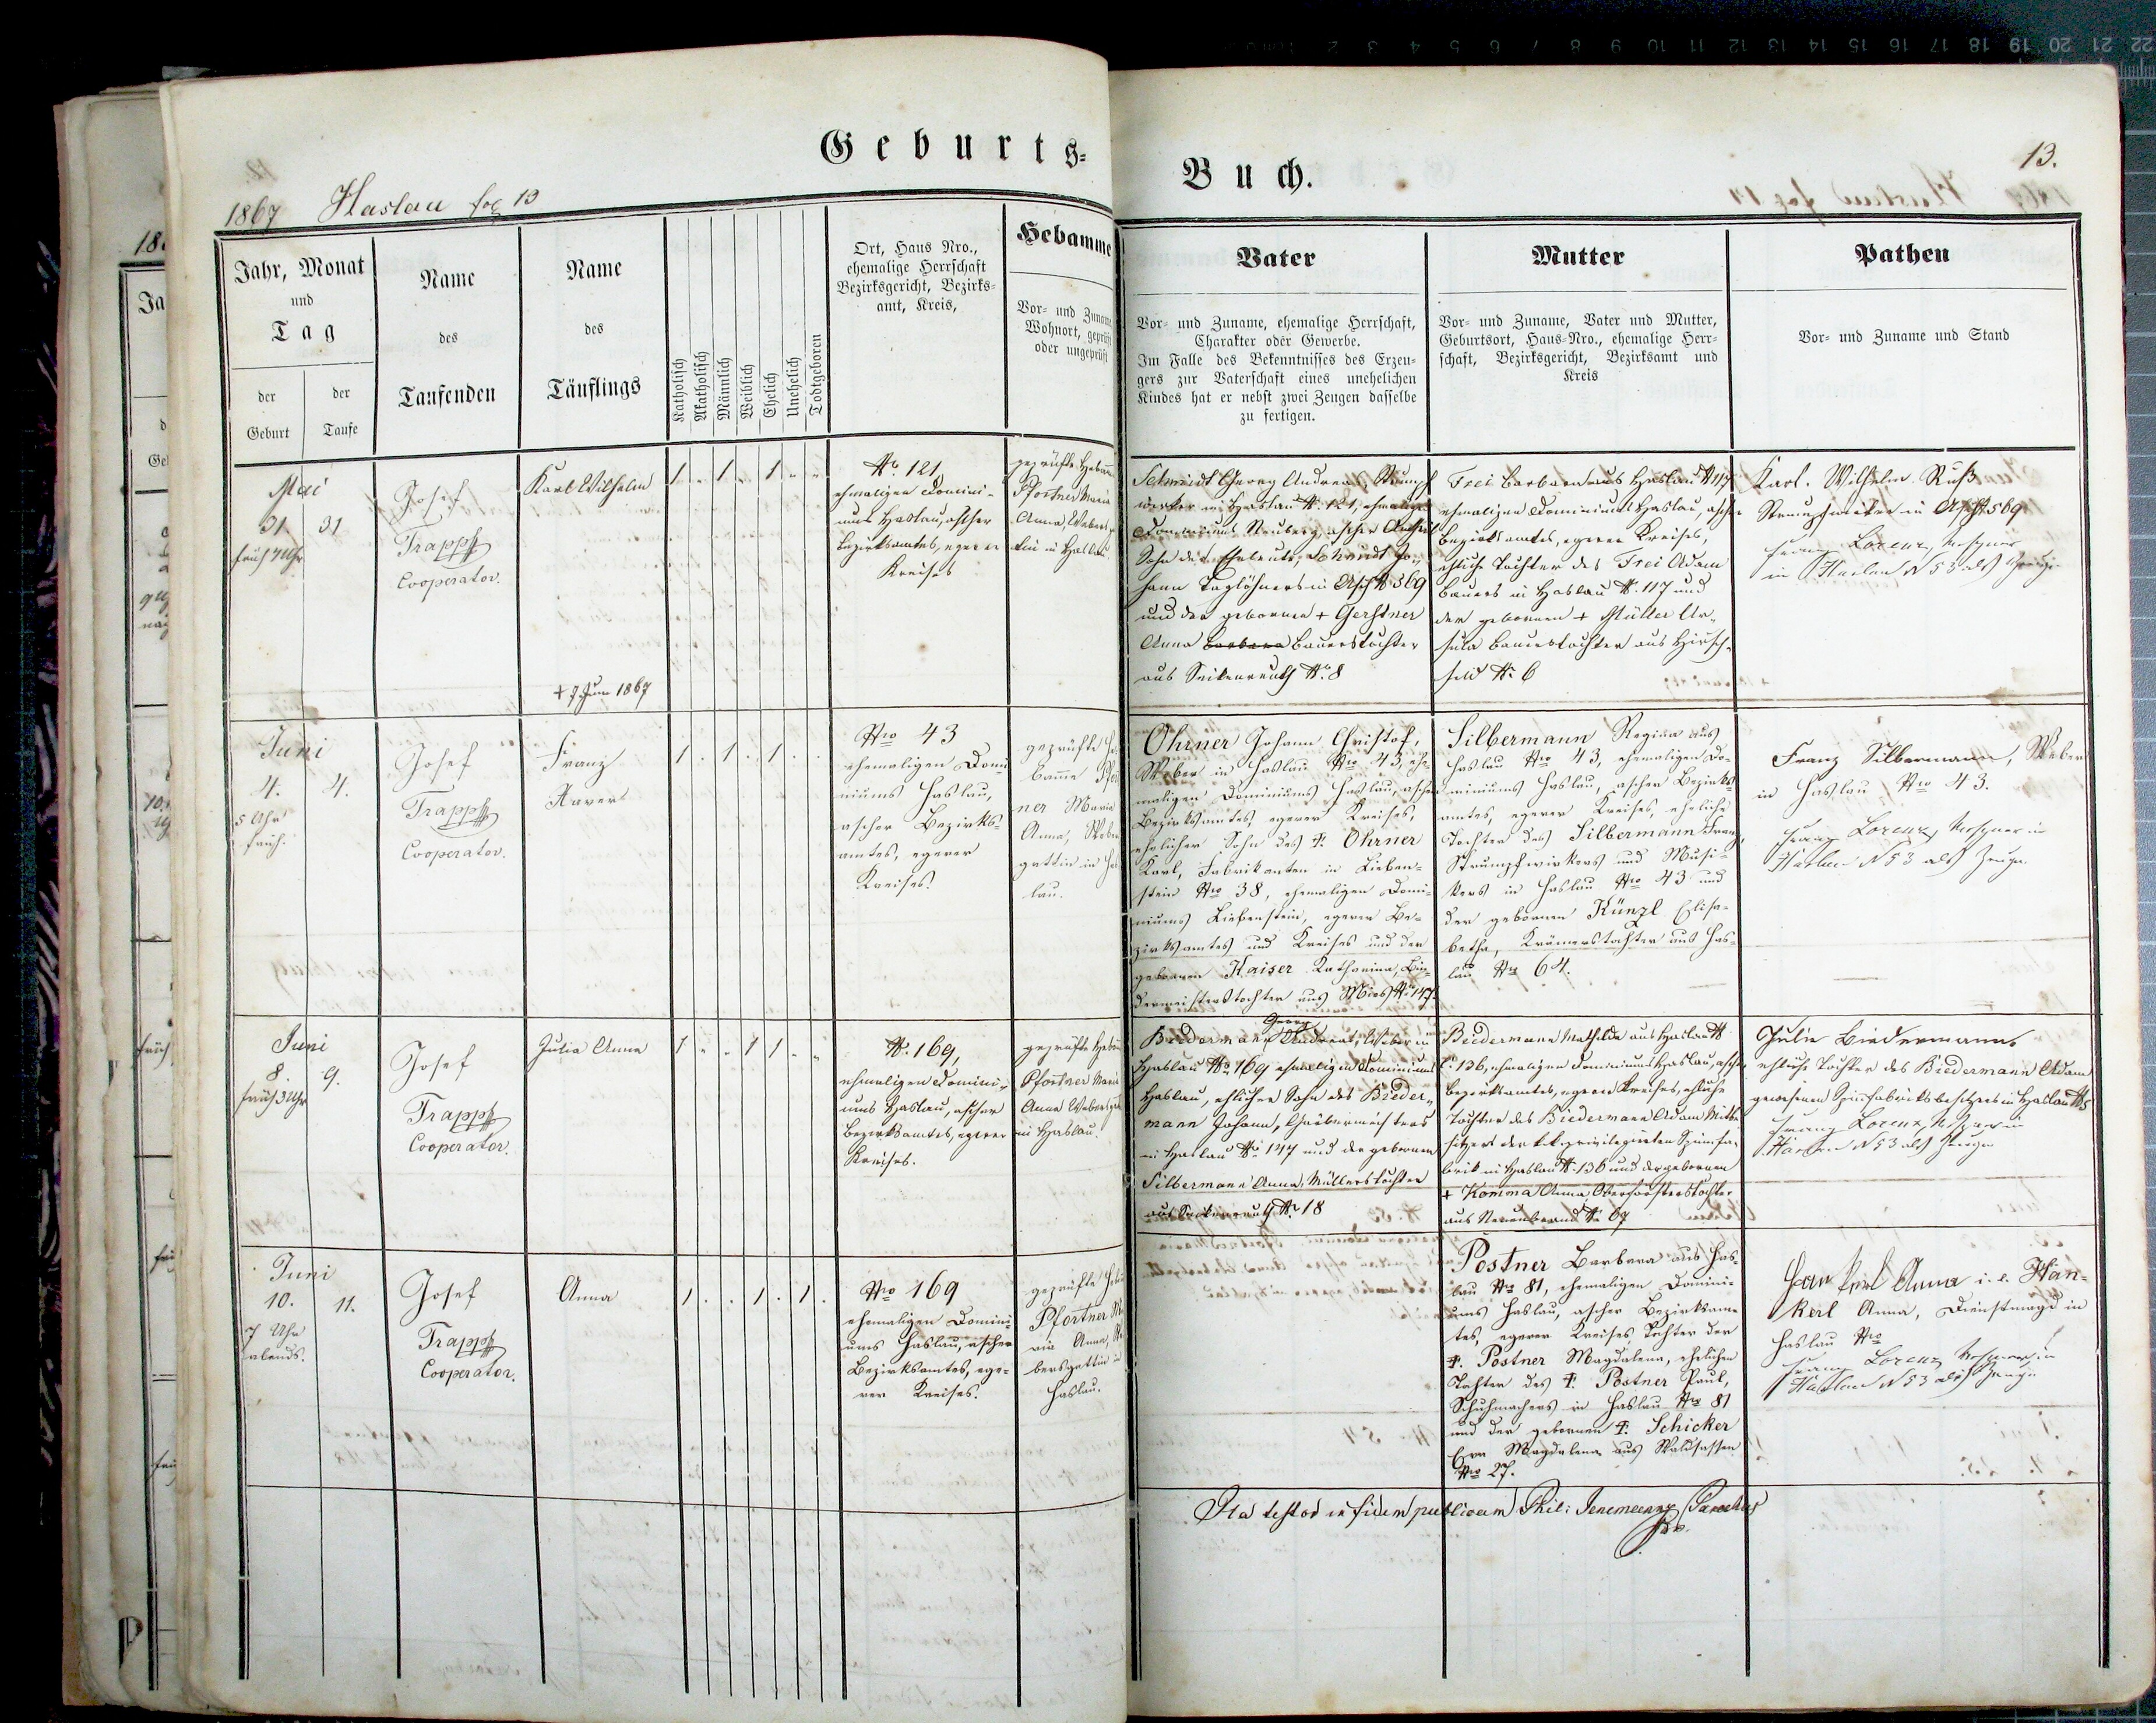 Geburts-
Buch.
13.
1867 Haslau fog 13
Jahr, Monat
und
Tag
der
Geburt
der
Taufe
Name
des
Taufenden
Name
des
Täuflings
Katholisch
Akatholisch
Männlich
Weiblich
Ehelich
Unehelich
Todtgeboren
Ort, Haus Nro.,
ehemalige Herrschaft
Bezirksgericht, Bezirks-
amt, Kreis,
Hebamme
Vor- und Zuname
Wohnort, geprüft
oder ungeprüft
Vater
Vor- und Zuname, ehemalige Herrschaft,
Charakter oder Gewerbe.
Im Falle des Bekenntnisses des Erzeu-
gers zur Vaterschaft eines unehelichen
Kindes hat er nebst zwei Zeugen dasselbe
zu fertigen.
Mutter
Vor- und Zuname, Vater und Mutter,
Geburtsort, Haus-Nro., ehemalige Herr-
schaft, Bezirksgericht, Bezirksamt und
Kreis
Pathen
Vor- und Zuname und Stand
Mai
31 31
früh 7 Uhr
Josef
Trapp
Cooperator.
Karl Wilhelm
+ 7 Juni 1867
1 1 1
No. 121,
ehmaligen Domini-
ums Haslau, ascher
Bezirksamtes, egerer
Kreises
geprüfte Hebam
Pfortner Maria
Anna Webers
tin in Haslau.
Schmidt Georg Andreas, Strumpf
wirker in Haslau No. 121, ehmaligen
Dominiums Neuberg, ascher
Sohn der Eheleute, Schmidt Jo-
hann Taglöhners in Asch No 569
und der gebornen + Gerstner
Anna Barbara Bauerstochter
aus Seikenreuth No. 8
Frei Barbara aus Haslau No 117
ehmaligen Dominiums Haslau, ascher
Bezirksamtes, egerer Kreises,
ehliche Tochter des Frei Adam
Bauers in Haslau No. 117 und
der gebornen + Müller Ur-
sula Bauerstochter aus Hirsch-
feld No. 6
Karl Wilhelm Ruß
Strumpfwirker in Asch No 569
Franz Lorenz, Messner
in Haslau N 53 als Zeuge
Juni
4. 4.
5 Uhr
früh.
Josef
Trapp
Cooperator.
Franz
Xaver
1 1 1
Nro 43
ehemaligen Domi-
niums Haslau,
ascher Bezirks-
amtes, egerer
Kreises.
geprüfte He
bamme Pfort
ner Maria
Anna, Weber
gattin in Has
lau.
Ohrner Johann Christof,
Weber in Haslau Nro 43, ehe-
maligen Dominiums Haslau, ascher
Bezirksamtes, egerer Kreises,
ehelicher Sohn des +. Ohrner
Karl, Fabrikanten in Lieben-
stein Nro 38, ehemaligen Domi-
niums Liebenstein, egerer Be-
zirksamtes und Kreises und der
gebornen Kaiser Katharina, Bin-
dermeisterstochter aus Mies No 147.
Silbermann Regina aus
Haslau Nro 43, ehemaligen Do-
miniums Haslau, ascher Bezirks-
amtes, egerer Kreises, eheliche
Tochter des Silbermann Franz,
Strumpfwirkers und Musi-
kers in Haslau Nro 43 und
der gebornen Künzl Elisa-
betha, Krämerstochter aus Has-
lau Nro 64.
Franz Silbermann, Weber
in Haslau Nro 43.
Franz Lorenz, Messner in
Haslau N 53 als Zeuge
Juni
8 9.
früh 3 Uhr
Josef
Trapp
Cooperator.
Julia Anna
1 1 1
No. 169,
ehmaligen Domini-
ums Haslau, ascher
Bezirksamtes, egerer
Kreises.
geprüfte Hebam
Pfortner Maria
Anna Webersgat
in Haslau.
Georg
Biedermann Andreas, Weber in
Haslau No. 169 ehmaligen Dominiums
Haslau, ehlicher Sohn des Bieder-
mann Johann, Webermeisters
in Haslau No. 147 und der gebornen
Silbermann Anna, Müllerstochter
aus Seikenreuth No. 18
Biedermann Mathilde aus Haslau No
136, ehmaligen Dominiums Haslau, ascher
Bezirksamtes, egerer Kreises, ehliche
Tochter des Biedermann Adam Mitbe
sitzers der k.k. privilegirten Spinnfa-
brik in Haslau No. 136 und der gebornen
+ Komma Anna Oberförsterstochter
aus Neuenbrand No. 67
Julie Biedermann,
ehliche Tochter des Biedermann Adam
gewesenen Spinnfabriksbesitzers in Haslau No
Franz Lorenz, Messner in
Haslau N 53 als Zeuge
Juni
10. 11.
7 Uhr
abends.
Josef
Trapp
Cooperator.
Anna
1 1 1
Nro 169
ehemaligen Domini-
ums Haslau, ascher
Bezirksamtes, ege-
rer Kreises.
geprüfte Heb
Pfortner Ma
ria Anna, We
bersgattin in
Haslau.
Postner Barbara aus Has-
lau Nro 81, ehemaligen Domini-
ums Haslau, ascher Bezirksam-
tes, egerer Kreises, Tochter der
+. Postner Magdalena, ehelichen
Tochter des +. Postner Paul,
Schuhmachers in Haslau Nro 81
und der gebornen +. Schicker
Eva Magdalena aus Waldsassen
Nro 27.
Hankerl Anna i. e. Han-
kerl Anna, Dienstmagd in
Haslau Nro
Franz Lorenz, Messner in
Haslau N 53 als Zeuge
Ita testor in fidem publicam Phil: Parochus